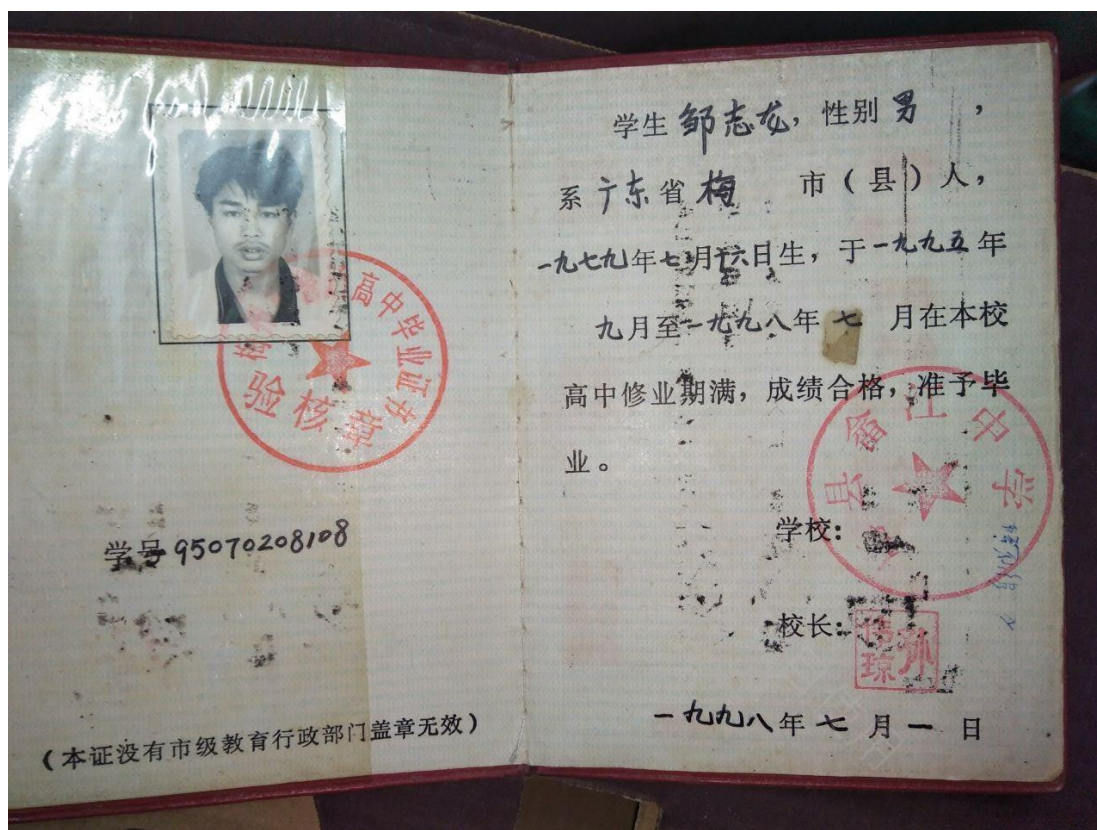 高中毕业证书
验核章
学号 95070208108
(本证没有市级教育行政部门盖章无效)
学生 邹志龙, 性别 男 ,
系 广东 省 梅 市(县)人,
一九七九年七月十六日生, 于一九九五年
九月至一九九八年 七 月在本校
高中修业期满, 成绩合格, 准予毕
业。
县畲江中学
学校:
校长:
一九九八年 七 月 一 日